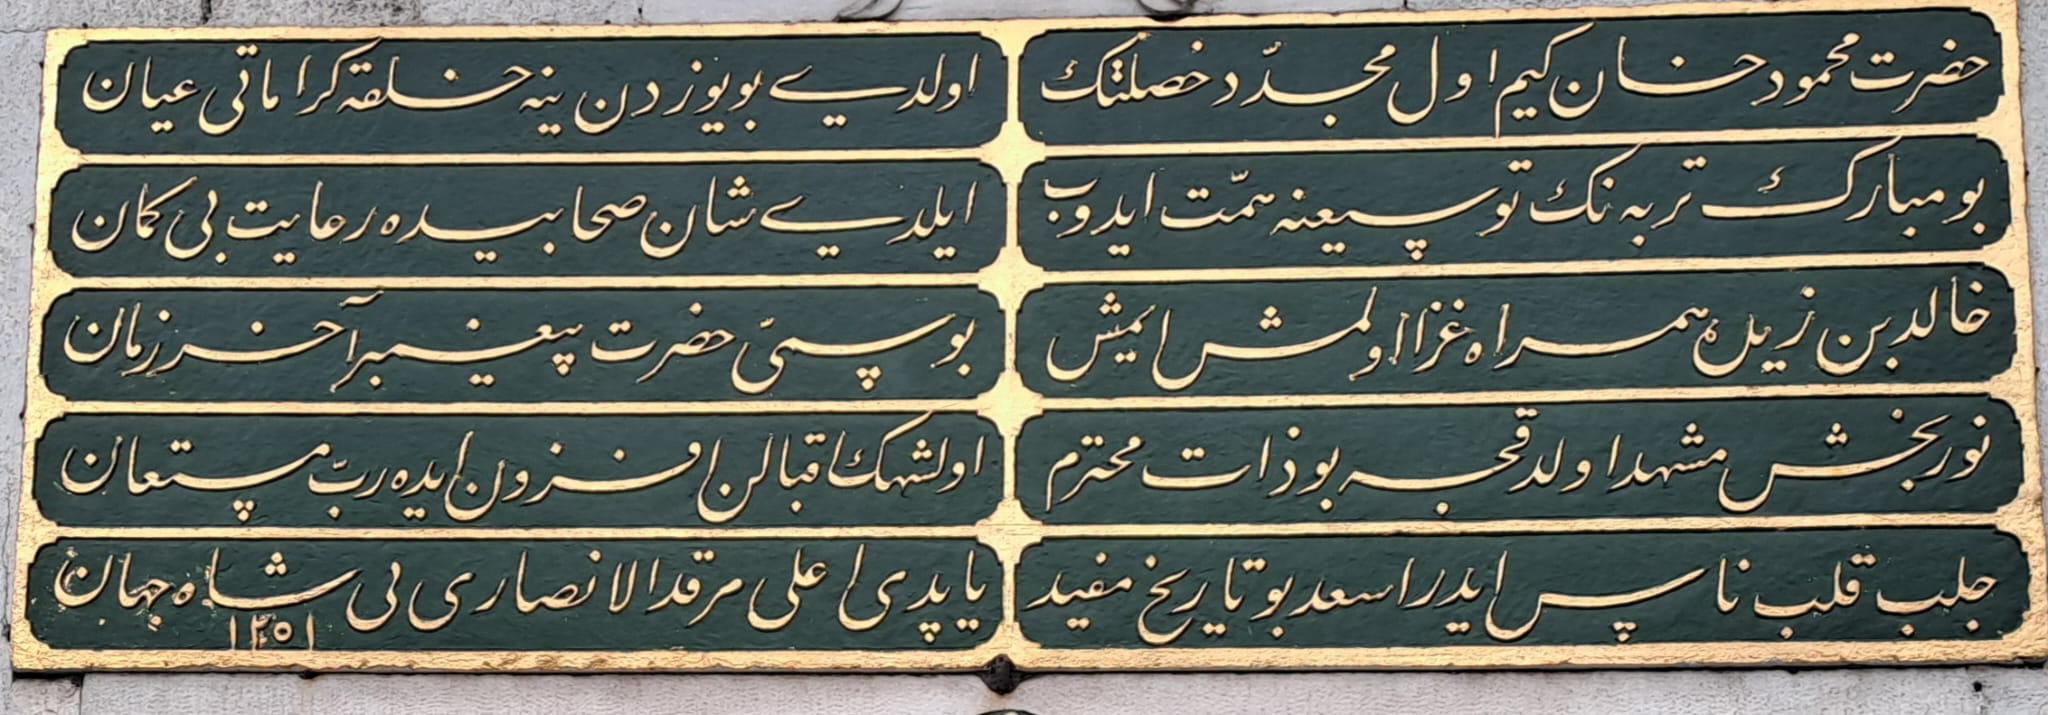 حضرت محمود خان كيم اول مجدّد خصلتك
اولدى بو يوزدن ينه خلقه كراماتى عيان
بو مبارك تربه نك توسيعنه همّت ايدوب
ايلدى شان صحابيده رعايت بى كمان
خالد بن زيده همراه غزا اولمش ايمش
بو سمىّ حضرت پيغمبر آخر زمان
نوربخش مشهد اولدقجه بو ذات محترم
اول شهك اقبالن افزون ايده ربّ مستعان
جلب قلب ناس ايدر اسعد بو تاريخ مفيد
ياپدى اعلى مرقد الانصارى يى شاه جهان
١٢٥١